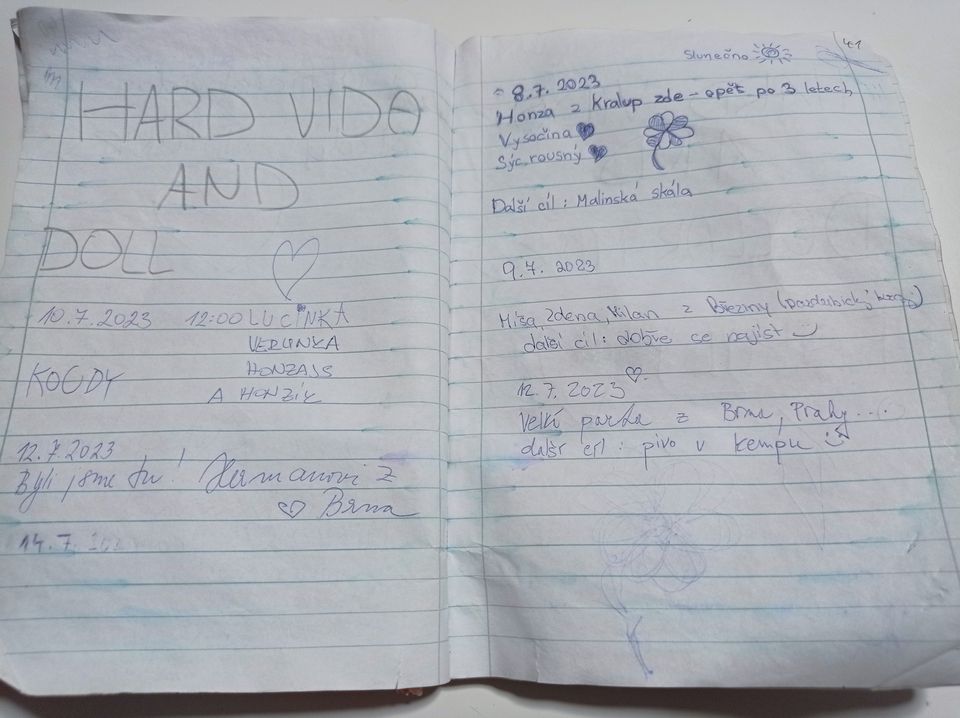 HARD VIDO
AND
DOLL
10.7.2023 12:00 LUCINKA
VERUNKA
KOUDY
A HONZÍK
12.7.2023
Byli jsme tu! Hermanovi z
Brna
14.7.
41
Slunečno
8.7.2023
Honza z Kralup zde - opět po 3 letech
Vysočina
Sýc rousný
Další cíl: Malinská skála
9.7.2023
Míša, Zdena, Milan z Březiny (pardubický kraj)
další cíl: dobře se najíst
12.7.2023
Velká parta z Brna, Prahy....
další cíl: pivo v kempu